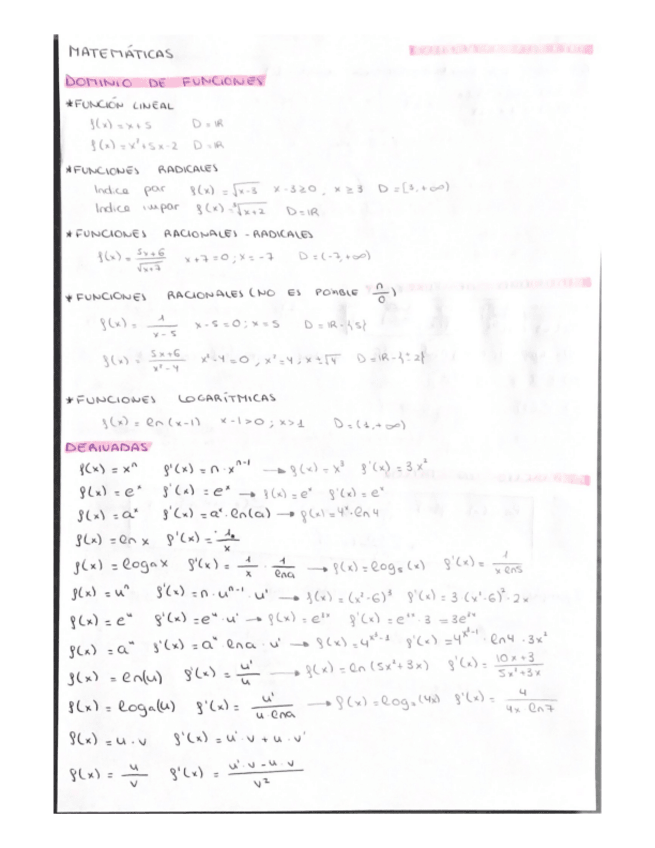 MATEMÁTICAS
DOMINIO DE FUNCIONES
*FUNCIÓN LINEAL
f(x) = x+5 D=IR
f(x) = x²+5x-2 D=IR
*FUNCIONES RADICALES
Indice par f(x) = √x-3 x-3≥0, x≥3 D=[3,+∞)
Indice impar f(x) = ³√x+2 D=IR
*FUNCIONES RACIONALES-RADICALES
f(x) = 3x+6/√x+7 x+7=0; x=-7 D=(-7,+∞)
*FUNCIONES RACIONALES (NO ES POSIBLE n/0)
f(x) = 1/x-5 x-5=0; x=5 D=IR-{5}
f(x) = 5x+6/x²-4 x²-4=0, x²=4; x±√4 D=IR-{±2}
*FUNCIONES LOGARÍTMICAS
f(x) = ln(x-1) x-1>0; x>1 D=(1,+∞)
DERIVADAS
f(x) = xⁿ f'(x) = n·xⁿ⁻¹ → f(x) = x³ f'(x) = 3x²
f(x) = eˣ f'(x) = eˣ → f(x) = eˣ f'(x) = eˣ
f(x) = aˣ f'(x) = aˣ·ln(a) → f(x) = 4ˣ·ln4
f(x) = ln x f'(x) = 1/x
f(x) = logax f'(x) = 1/x · 1/lna → f(x) = log₅(x) f'(x) = 1/x ln5
f(x) = uⁿ f'(x) = n·uⁿ⁻¹·u' → f(x) = (x²-6)³ f'(x) = 3·(x²-6)²·2x
f(x) = eᵘ f'(x) = eᵘ·u' → f(x) = e³ˣ f'(x) = e³ˣ·3 = 3e³ˣ
f(x) = aᵘ f'(x) = aᵘ·lna·u' → f'(x) = ·ln4·3x²
f(x) = ln(u) f'(x) = u'/u → f(x) = ln(5x²+3x) f'(x) = 10x+3/5x²+3x
f(x) = loga(u) f'(x) = u'/u·lna → f(x) = log₇(4x) f'(x) = 4/4x·ln7
f(x) = u·v f'(x) = u'·v+u·v'
f(x) = u/v f'(x) = u'·v-u·v/v²